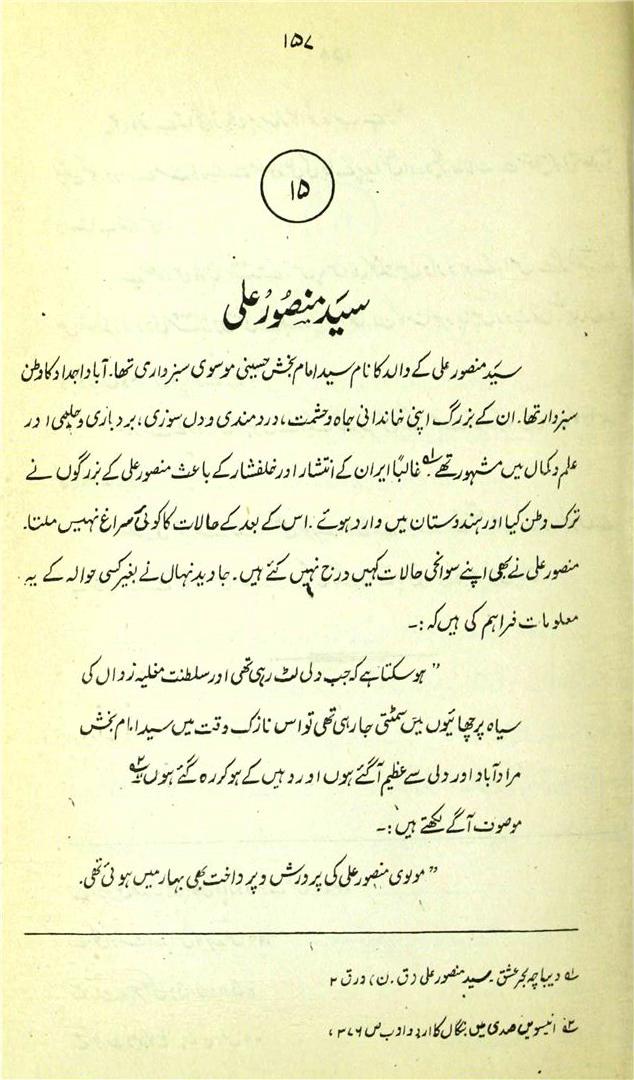 ۱۵۷
۱۵
سیّد منصُور علی
سیّد منصور علی کے والد کا نام سید امام بخش حسینی موسوی سبزداری تھا۔ آبا و اجداد کا وطن
سبزدار تھا۔ ان کے بزرگ اپنی خاندانی جاہ و حشمت، دردمندی و دل سوزی، بردباری و حلیمی اور
علم و کمال میں مشہور تھے۱؎۔ غالباً ایران کے انتشار اور خلفشار کے باعث منصور علی کے بزرگوں نے
ترک وطن کیا اور ہندوستان میں وارد ہوئے۔ اس کے بعد کے حالات کا کوئی سراغ نہیں ملتا۔
منصور علی نے بھی اپنے سوانحی حالات کہیں درج نہیں کئے ہیں۔ جاوید نہال نے بغیر کسی حوالہ کے یہ
معلومات فراہم کی ہیں کہ:۔
"ہو سکتا ہے کہ جب دلی لٹ رہی تھی اور سلطنت مغلیہ زوال کی
سیاہ پرچھائیوں میں سمٹتی جا رہی تھی تو اس نازک وقت میں سید امام بخش
مرادآباد اور دلی سے عظیم آگئے ہوں اور وہیں کے ہو کر رہ گئے ہوں۲؎"
موصوف آگے لکھتے ہیں:۔
"مولوی منصور علی کی پرورش و پرداخت بھی بہار میں ہوئی تھی۔
۱؎ دیباچہ بحر عشق۔ سید منصور علی (ق۔ن) ورق ۲
۲؎ انیسویں صدی میں بنگال کا اردو ادب ص ۳۷۶،